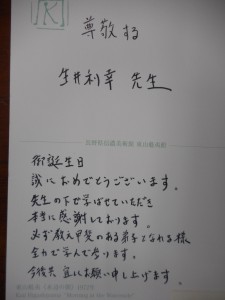 K
尊敬する
生井利幸 先生
長野県信濃美術館 東山魁夷館
御誕生日
誠におめでとうございます。
先生の下で学ばせていただき
本当に感謝しております。
必ず教え甲斐のある弟子となれる様
全力で学んで参ります。
今後共 宜しくお願い申し上げます。